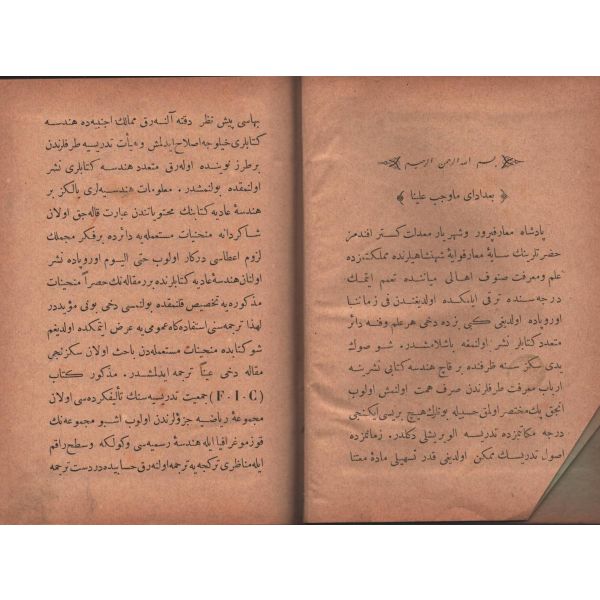 بسم الله الرحمن الرحيم
بعد ادای ماوجب علينا
پادشاه معارفپرور وشهريار معدلت كستر افندمز
حضرتلرينك سايهٔ معارفوايهٔ شهنشاهيلرنده مملكتمزده
علم ومعرفت صنوف اهالی مياننده تعمم ايتمك
درجه سنده ترقی ايلكده اولديغندن فی زماننا
اوروپاده اولديغی كبی بزده دخی هر علم وفنه دائر
متعدد كتابلر نشر اولنمغه باشلامشدر. شو صوك
يدی سكز سنه ظرفنده بر قاچ هندسه كتابی نشرينه
ارباب معرفت طرفلرندن صرف همت اولنمش اولوب
انجق پك مختصر اولمق حسبيله بونلرك هيچ بريسی ايكنجی
درجه مكاتبمزده تدريسه الويريشلی دكلدر. زمانمزده
اصول تدريسك ممكن اولديغی قدر تسهيلی مادهٔ معتنا
بهاسی پيش نظر دقته آلنه رق ممالك اجنبيه ده هندسه
كتابلری خيلوجه اصلاح ايدلمش وهيأت تدريسيه طرفلرندن
بر طرز نوينده اوله رق متعدد هندسه كتابلری نشر
اولنمقده بولنمشدر. معلومات هندسيه لری يالكز بر
هندسهٔ عاديه كتابنك محتوياتندن عبارت قاله جق اولان
شاكردانه منحنيات مستعمله يه دائر ده بر فكر مجملك
لزوم اعطاسی دركار اولوب حتی اليوم اوروپاده نشر
اولنان هندسهٔ عاديه كتابلرنده بر مقاله نك حصراً منحنيات
مذكوره يه تخصيص قلنمقده بولنمسی دخی بونی مؤيددر
لهذا ترجمه سنی استفاده كاه عمومی يه عرض ايتمكده اولديغم
شو كتابده منحنيات مستعمله دن باحث اولان سكزنجی
مقاله دخی عيناً ترجمه ايدلمشدر. مذكور كتاب
(F·I·C) جمعيت تدريسيه سنك تأليفكرده سی اولان
مجموعهٔ رياضيه جزؤلرندن اولوب اشبو مجموعه نك
قوزموغرافيا ايله هندسهٔ رسميه سی وكولكه وسطح راقم
ايله مناظری تركجه يه ترجمه اولنه رق حسابيده دردست ترجمه